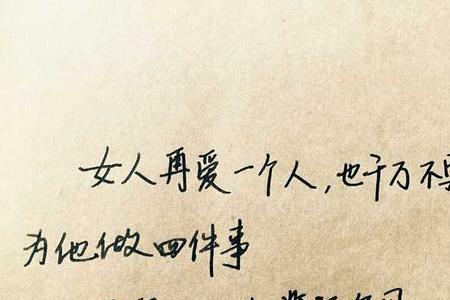 女人再爱一个人，也千万不要
为他做四件事